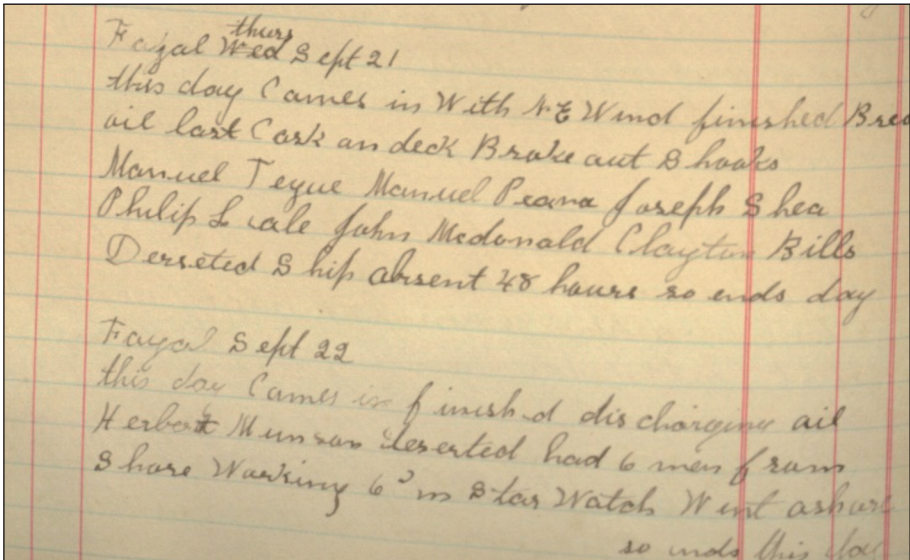 thurs
Fayal Wed Sept 21
this day Comes in With N.E Wind finished
oil last Cask on deck Broke out Shooks
Manuel Tegue Manuel Peana Joseph Shea
Philip John Mcdonald Clayton Bills
Derseted Ship absent 48 hours so ends day
Fayal Sept 22
this day Comes in finished discharging oil
Munson deserted had 6 men from
Shore Working Star Watch Went ashore
so ends this day